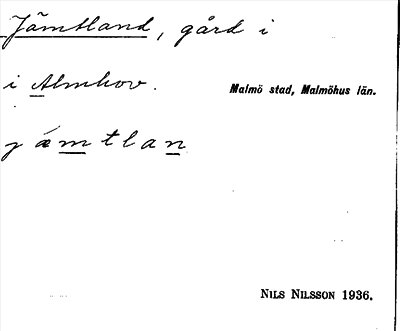 Jämtland, gård i
i Almhov.
Malmö stad, Malmöhus län.
jämtlan
NILS NILSSON 1936.